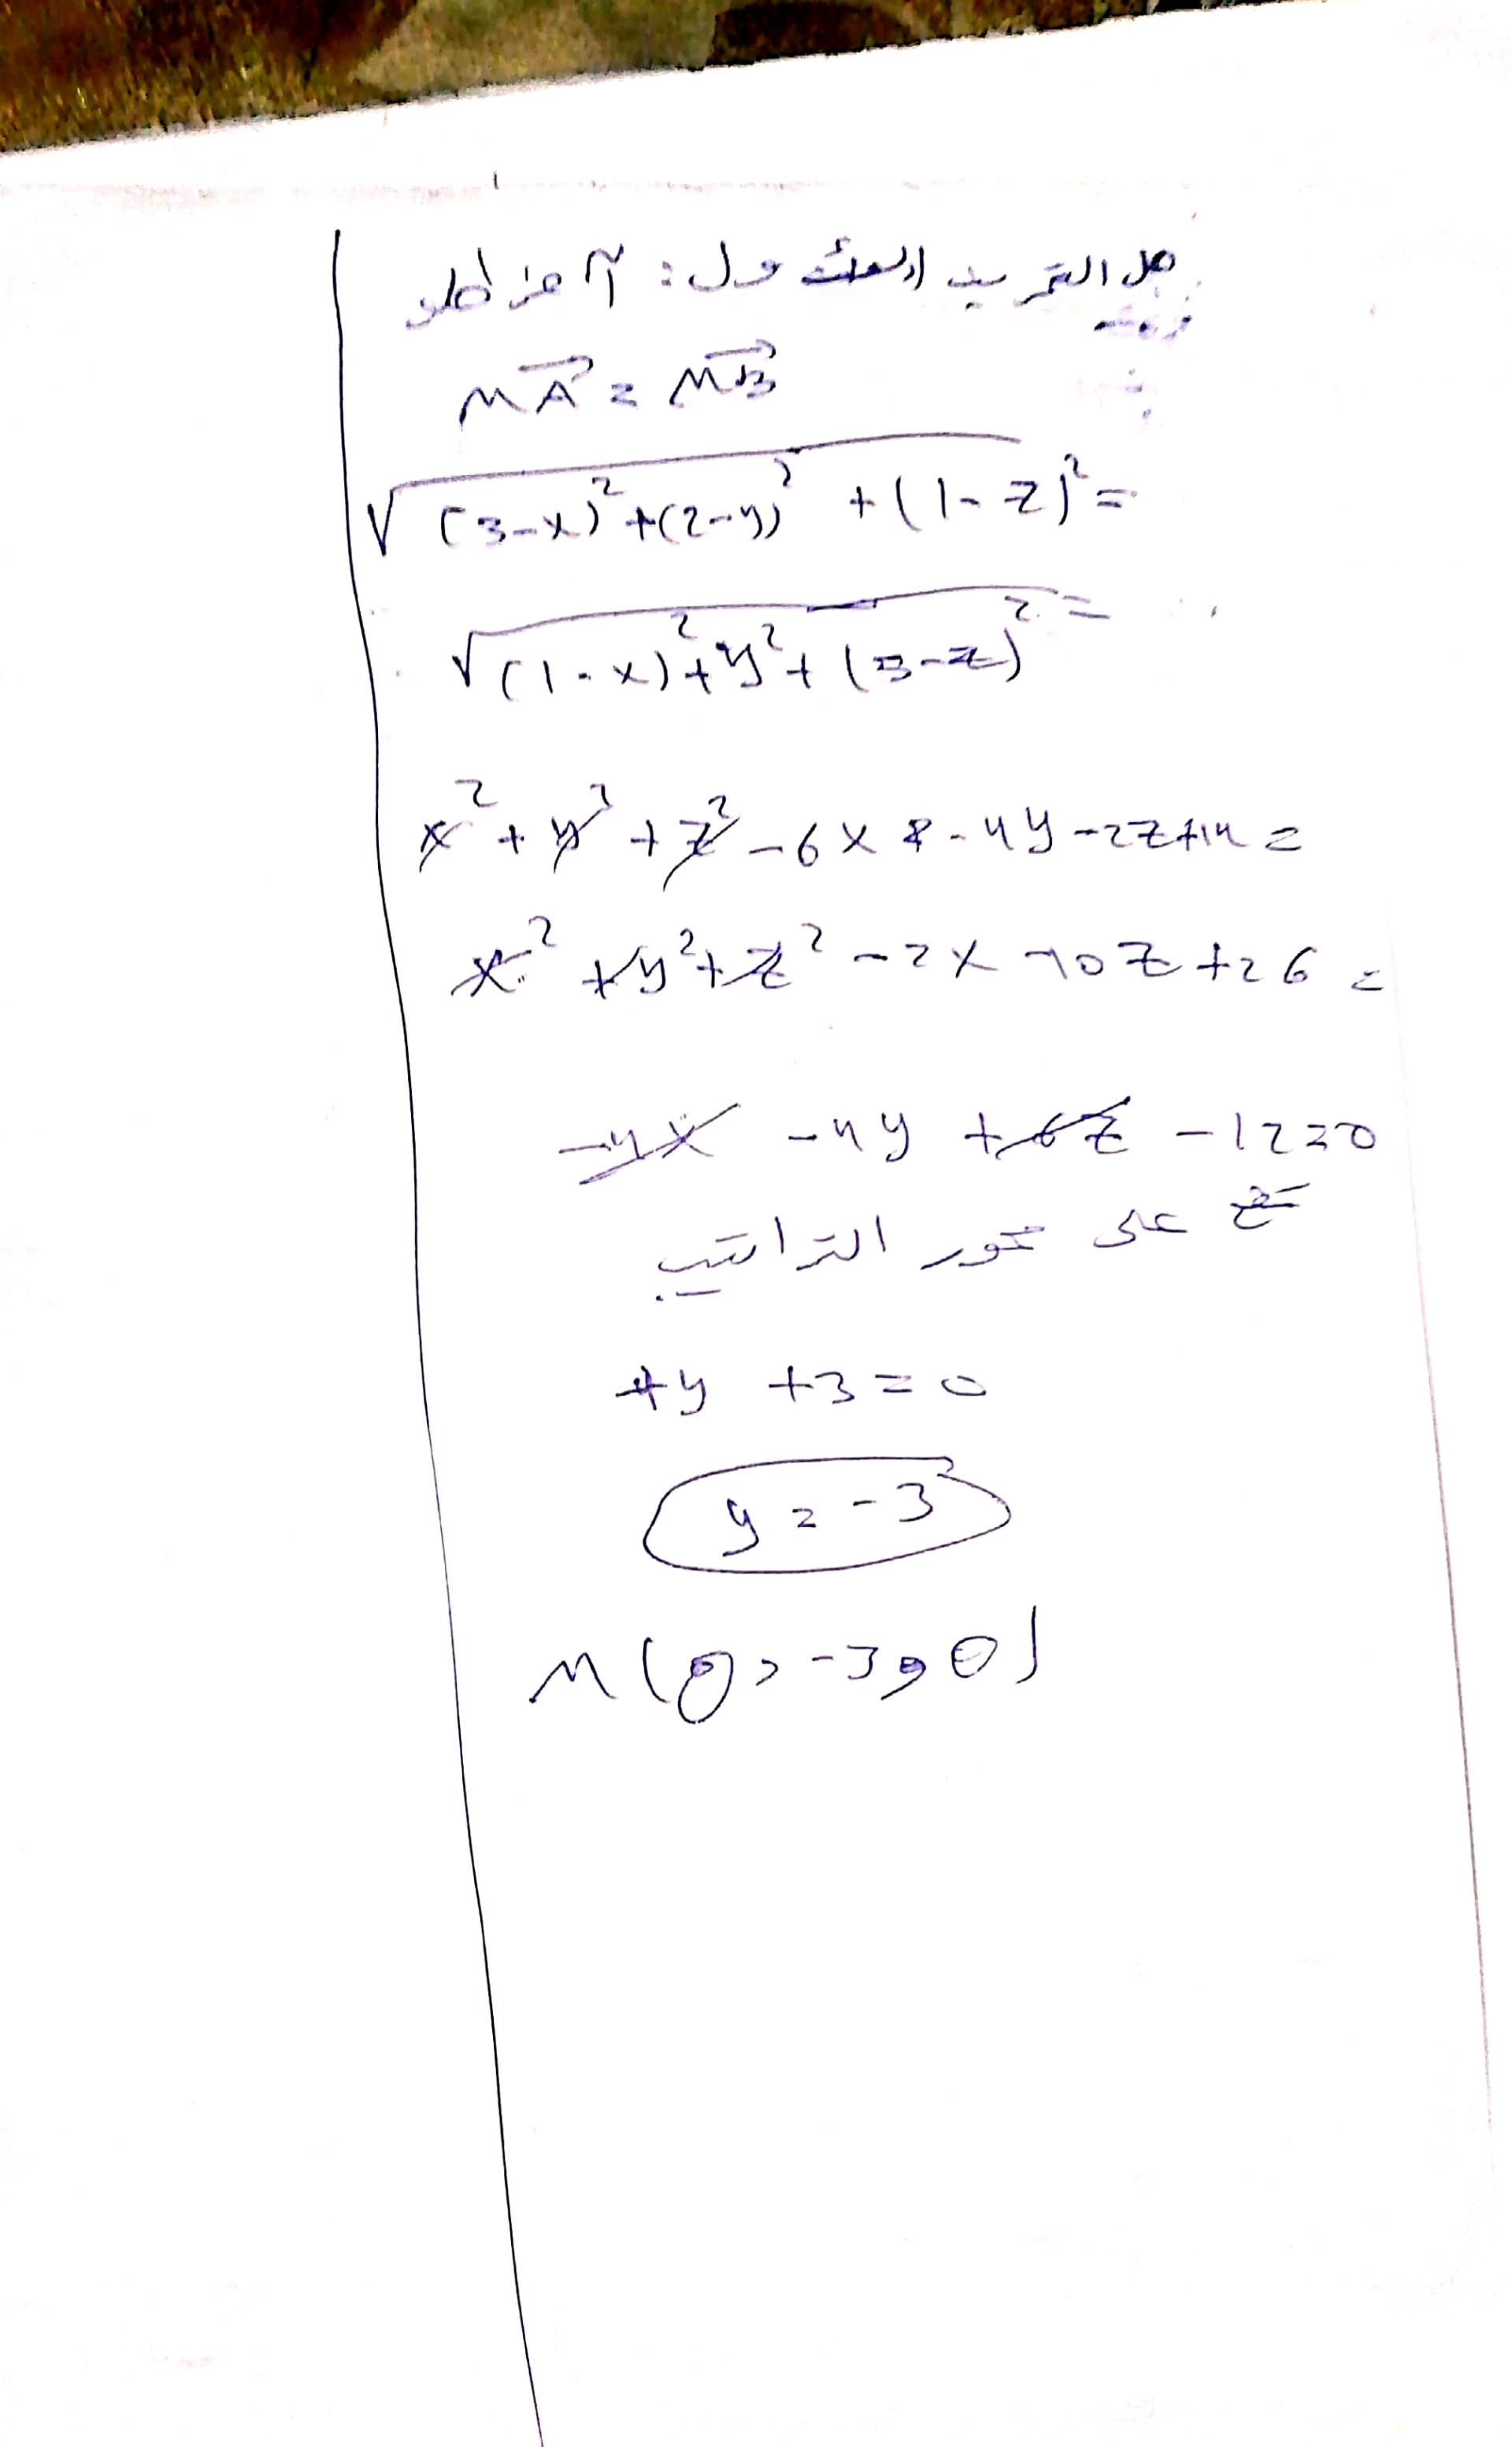 حل التمرين الأول :
MA = MB
√(3-x)² + (2-y)² + (1-z)² =
√(1-x)² + y² + (5-z)² =
x² + y² + z² - 6x - 4y - 2z + 14 =
x² + y² + z² - 2x - 10z + 26 =
-4x - 4y + 8z - 12 = 0
تقع على محور التراتيب
+y + 3 = 0
y = -3
M(0, -3, 0)